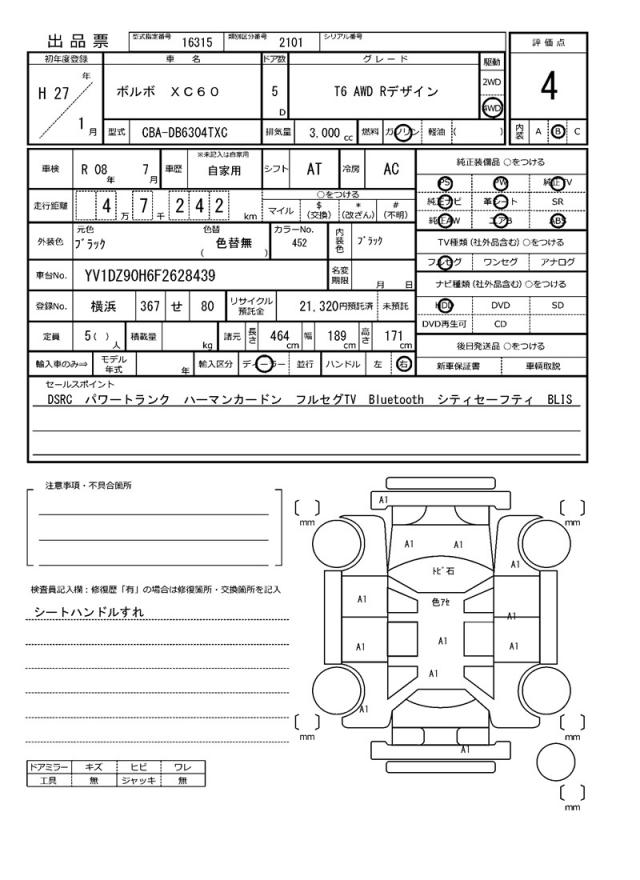 出品票 型式指定番号 16315 類別区分番号 2101 シリアル番号
評価点
4
初年度登録 車名 ドア数 グレード 駆動
H 27 年 1 月
ボルボ XC60 5 D T6 AWD Rデザイン 2WD 4WD
型式 CBA-DB6304TXC 排気量 3,000 cc 燃料 ガソリン 軽油 ( ) 内装 A B C
車検 R 08 年 7 月 車歴 ※未記入は自家用 自家用 シフト AT 冷房 AC
走行距離 4 万 7 千 2 4 2 km ○をつける マイル $ (交換) * (改ざん) # (不明)
外装色 元色 ブラック 色替 色替無 ( ) カラーNo. 452 内装色 ブラック
車台No. YV1DZ90H6F2628439 名変期限 月 日
登録No. 横浜 367 せ 80 リサイクル預託金 21,320円預託済 未預託
定員 5( ) 人 積載量 kg 諸元 長さ 464 cm 幅 189 cm 高さ 171 cm
輸入車のみ⇒ モデル年式 年 輸入区分 ディーラー 並行 ハンドル 左 右
純正装備品 ○をつける
PS PW 純正TV
純正ナビ 革シート SR
純正AW エアB ABS
TV種類 (社外品含む) ○をつける
フルセグ ワンセグ アナログ
ナビ種類 (社外品含む) ○をつける
HDD DVD SD
DVD再生可 CD
後日発送品 ○をつける
新車保証書 車輌取説
セールスポイント
DSRC パワートランク ハーマンカードン フルセグTV Bluetooth シティセーフティ BLIS
注意事項・不具合箇所
検査員記入欄：修復歴「有」の場合は修復箇所・交換箇所を記入
シートハンドルすれ
ドアミラー キズ ヒビ ワレ
工具 無 ジャッキ 無
A1
mm mm
A1 A1
A1
トビ石
A1 色アセ
A1
A1 A1 A1
A1
A1
mm mm
A1
mm